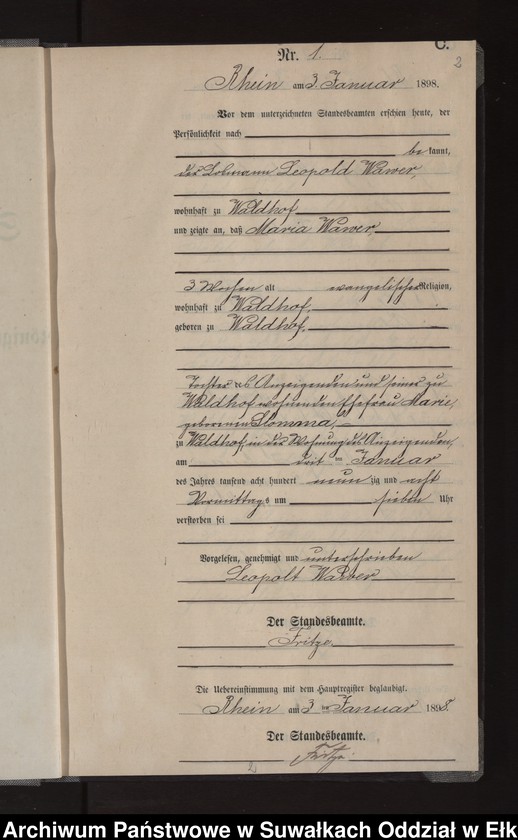 C.
2
Nr. 1.
Rhein am 3. Januar 1898.
Vor dem unterzeichneten Standesbeamten erschien heute, der
Persönlichkeit nach
be kannt,
der Leopold Wawer,
wohnhaft zu Waldhof
und zeigte an, daß Maria Wawer,
3 Wochen alt evangelischer Religion,
wohnhaft zu Waldhof,
geboren zu Waldhof,
Tochter des Anzeigenden und seiner zu
Waldhof wohnenden Ehefrau Marie,
geborenen Slomma,
zu Waldhof, in der Wohnung des Anzeigenden,
am drit ten Januar
des Jahres tausend acht hundert neun zig und acht
Vormittags um sieben Uhr
verstorben sei
Vorgelesen, genehmigt und unterschrieben
Leopolt Wawer
Der Standesbeamte.
Fritze
Die Uebereinstimmung mit dem Hauptregister beglaubigt.
Rhein am 3 ten Januar 1898.
Der Standesbeamte.
Fritze
Archiwum Państwowe w Suwałkach Oddział w Ełku